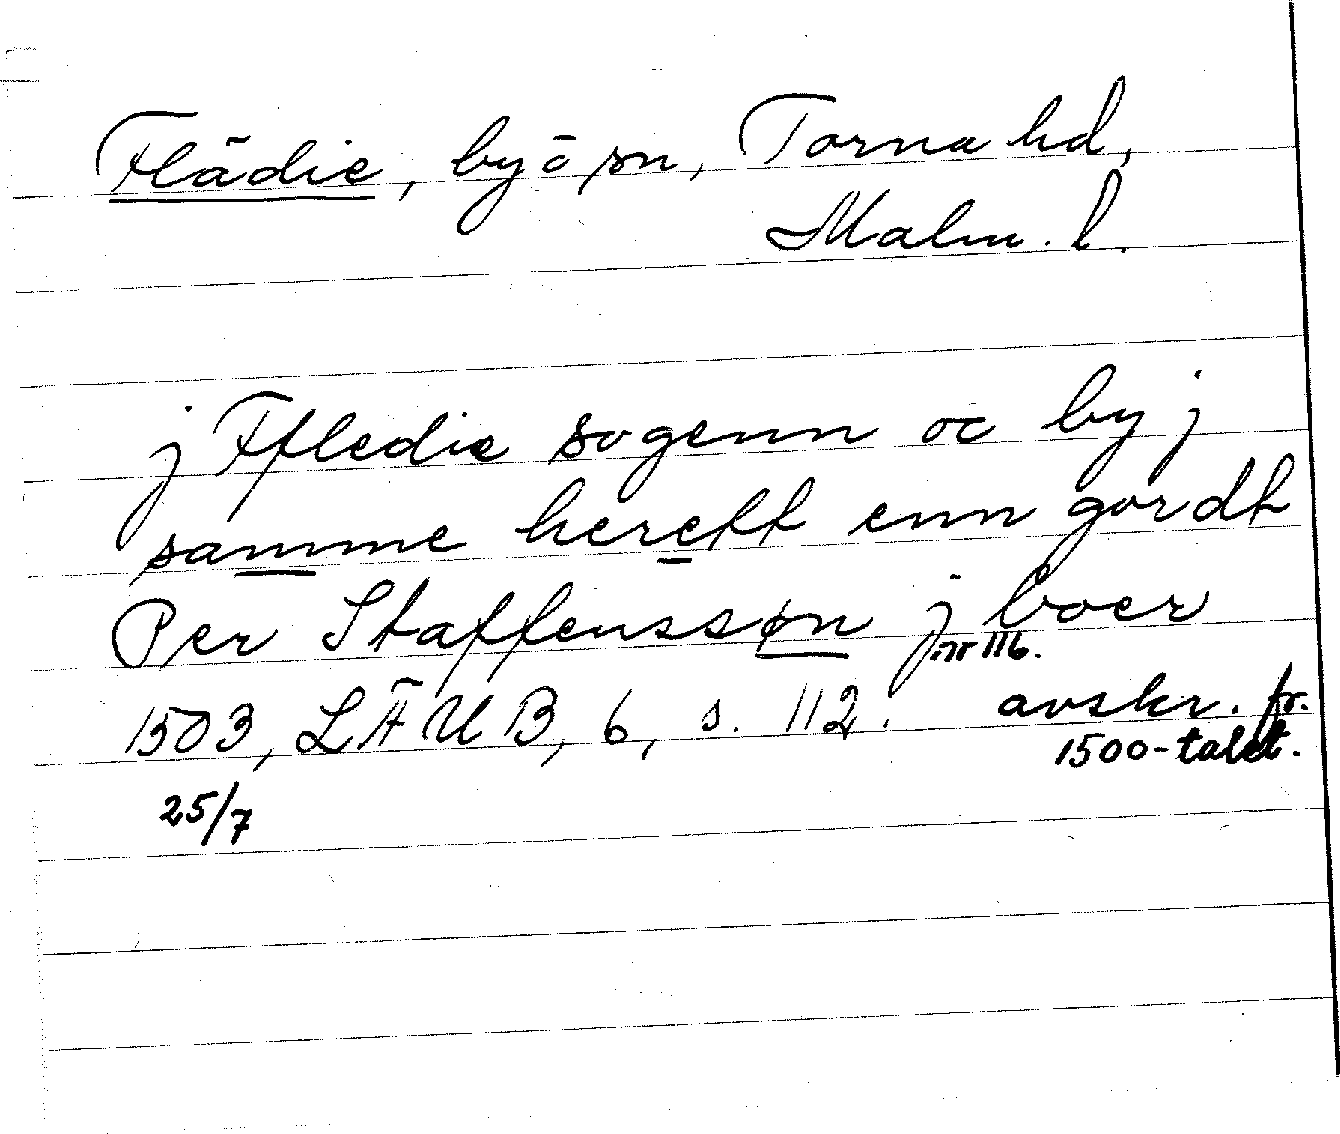 Flädie, by o sn, Torna hd,
Malm. l.
j Ffledie sogenn oc by j
samme herett enn gordt
Per Staffenssøn j boer
nr 116.
1503, LÄUB, 6, s. 112. avskr. fr.
1500-talet.
25/7